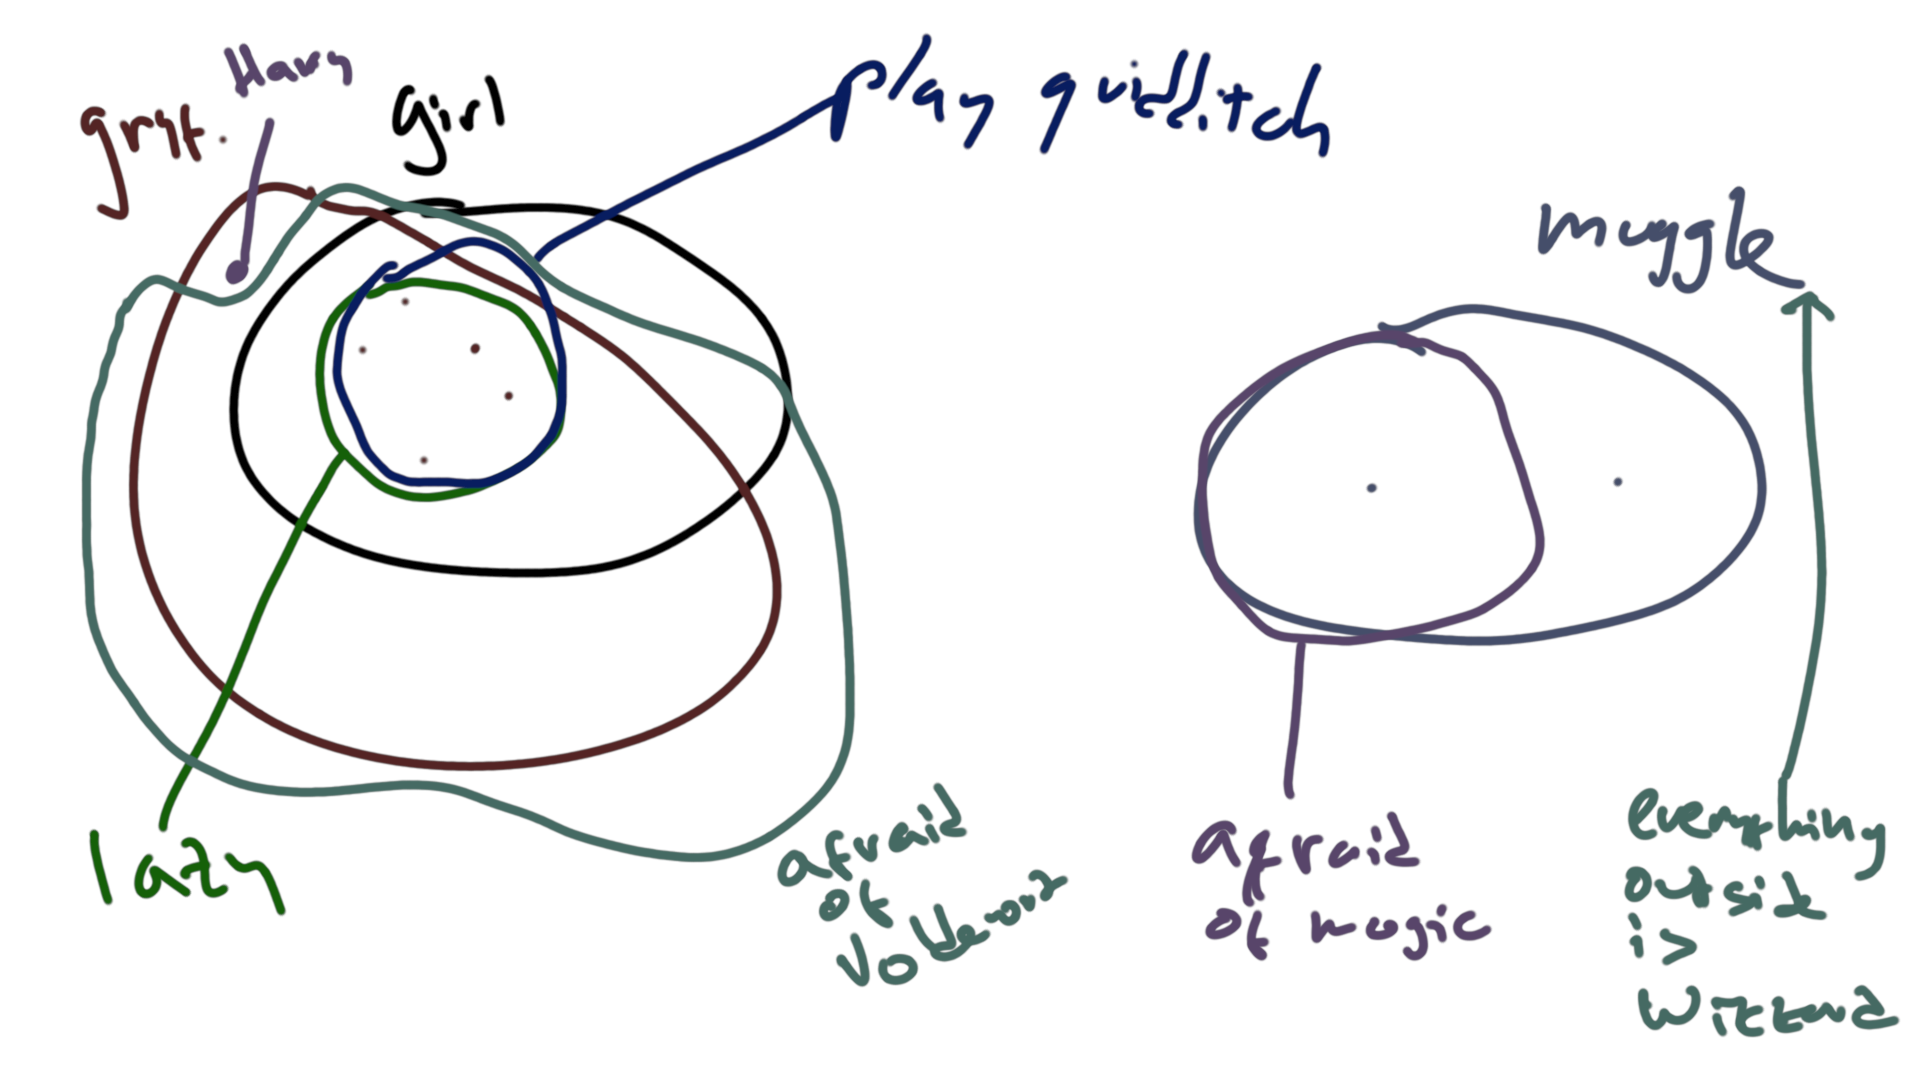 Harry
gryf.
girl
play quidditch
muggle
lazy
afraid
of
Voldemort
afraid
of magic
everything
outside
is
wizzard